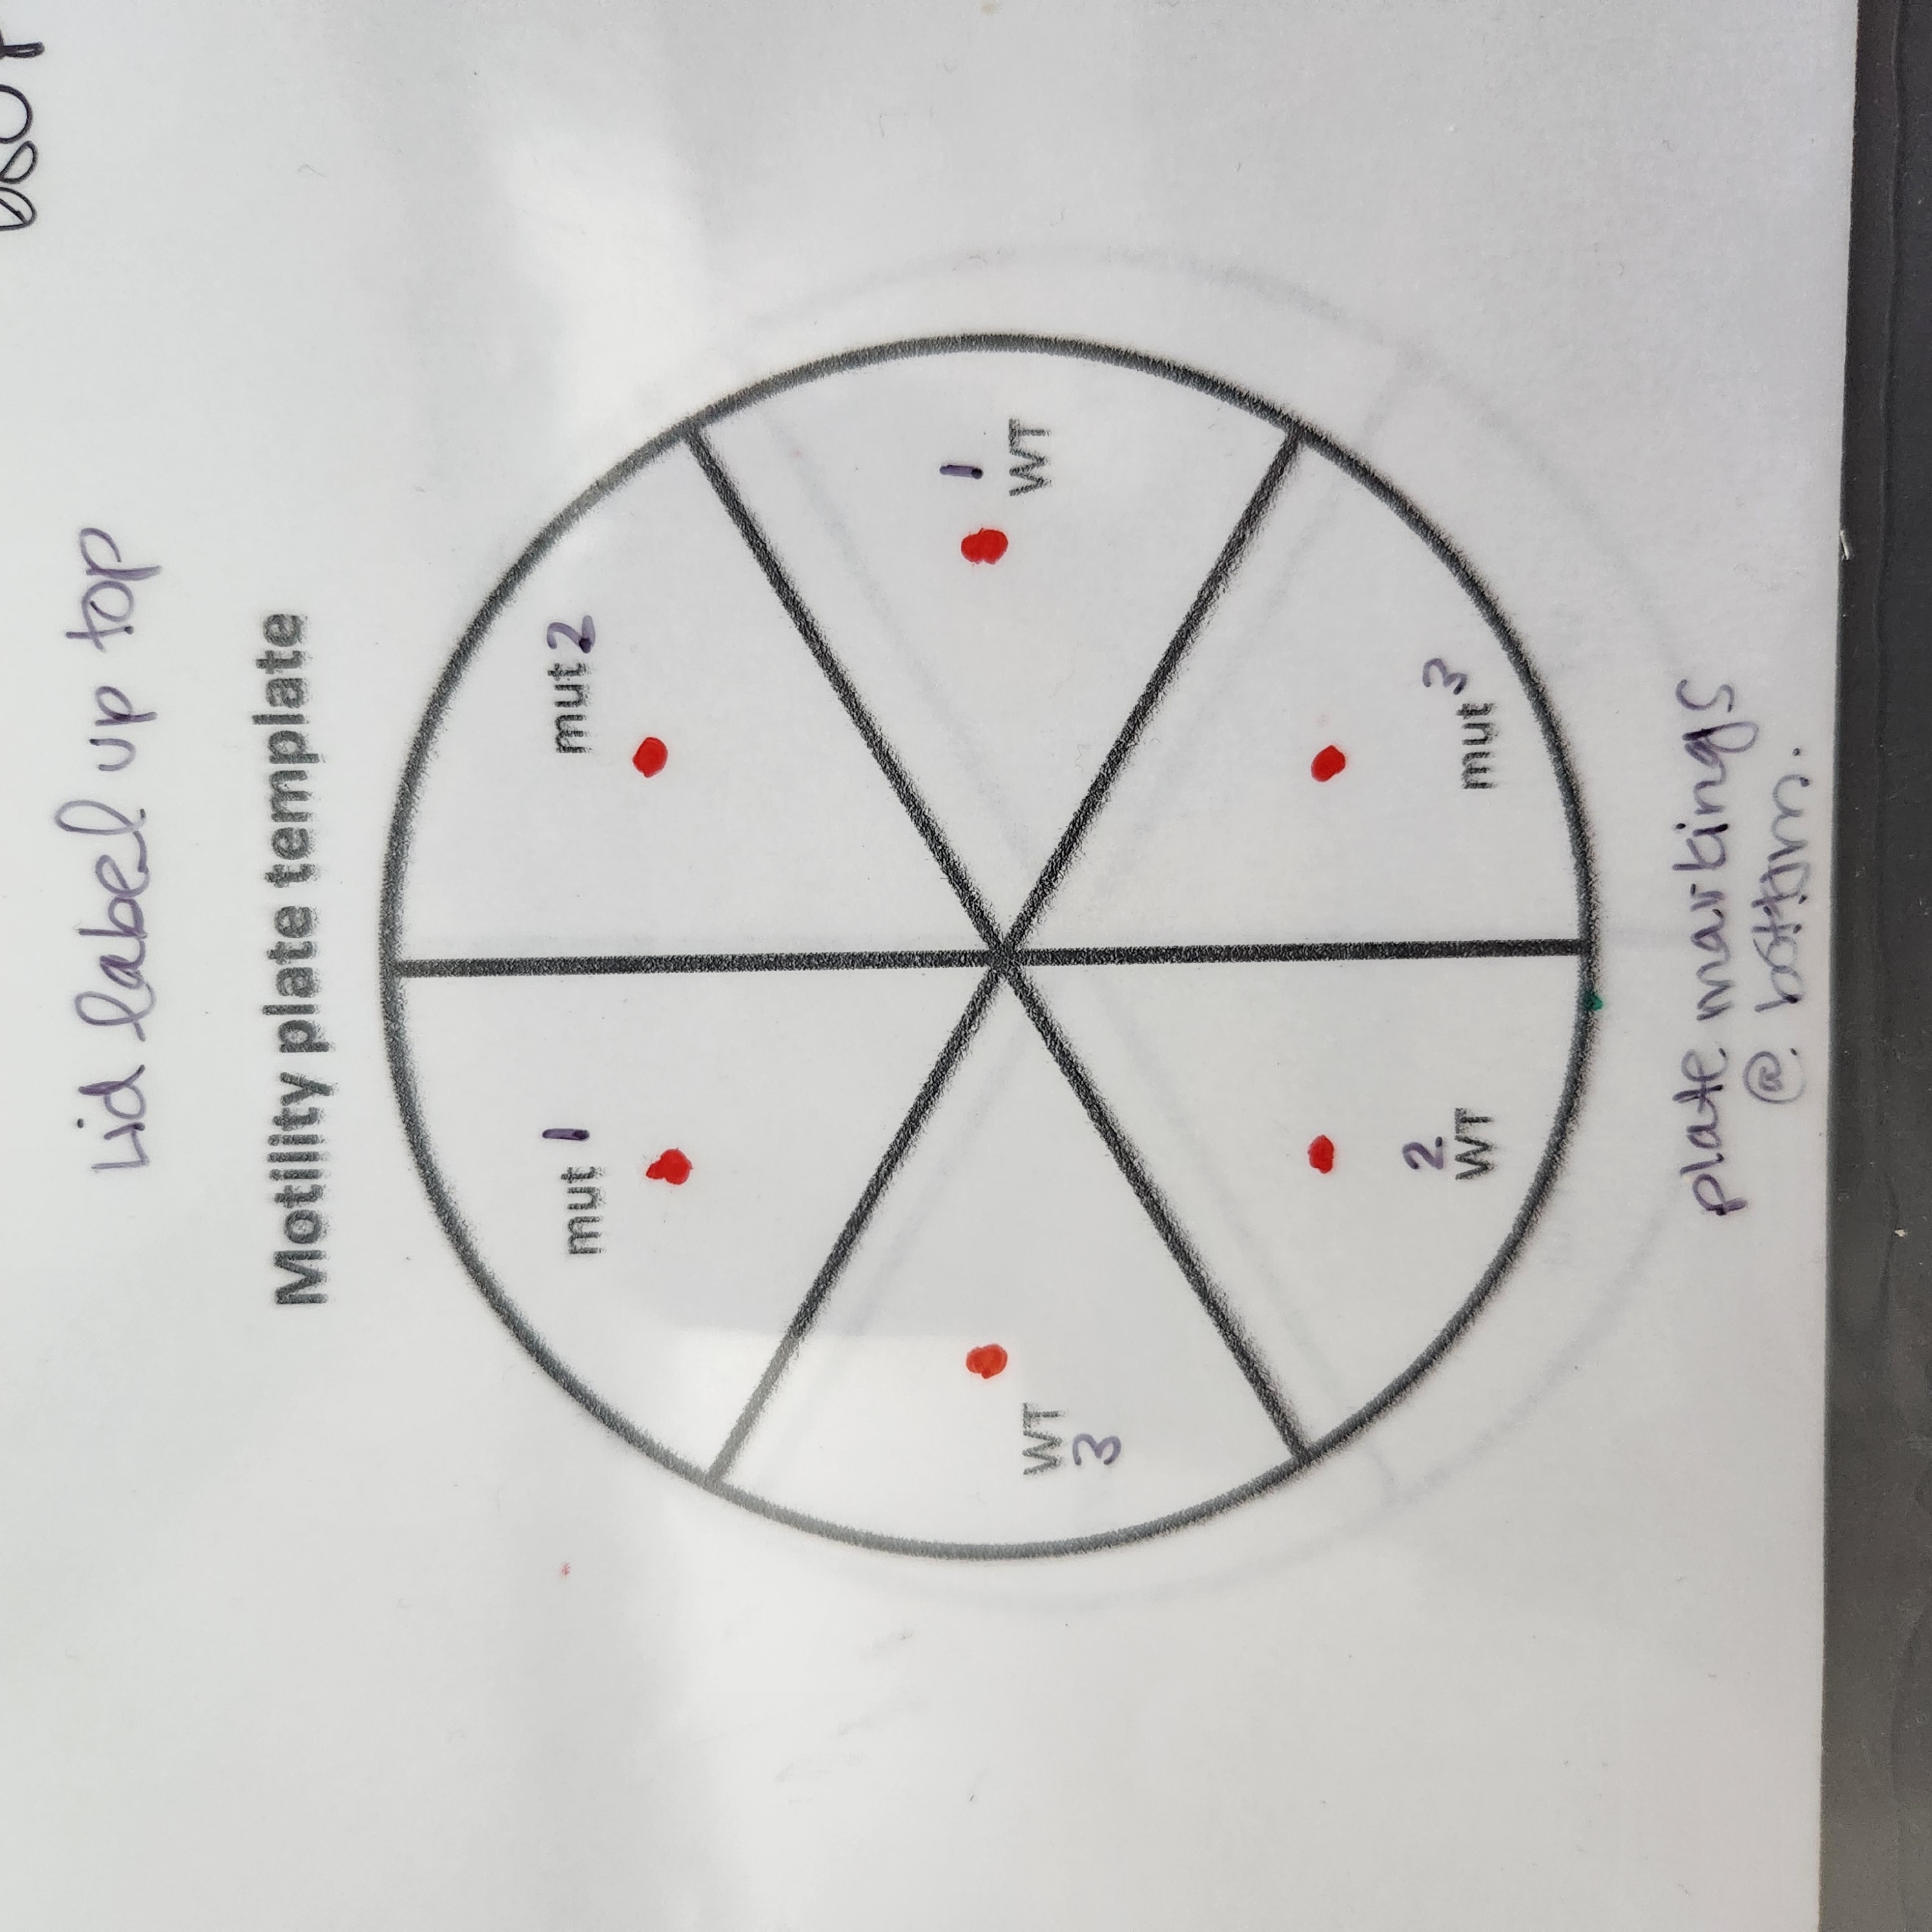 Lid label up top
Motility plate template
mut 1
mut 2
WT
3
1
WT
2
WT
mut 3
plate markings
@ bottom.